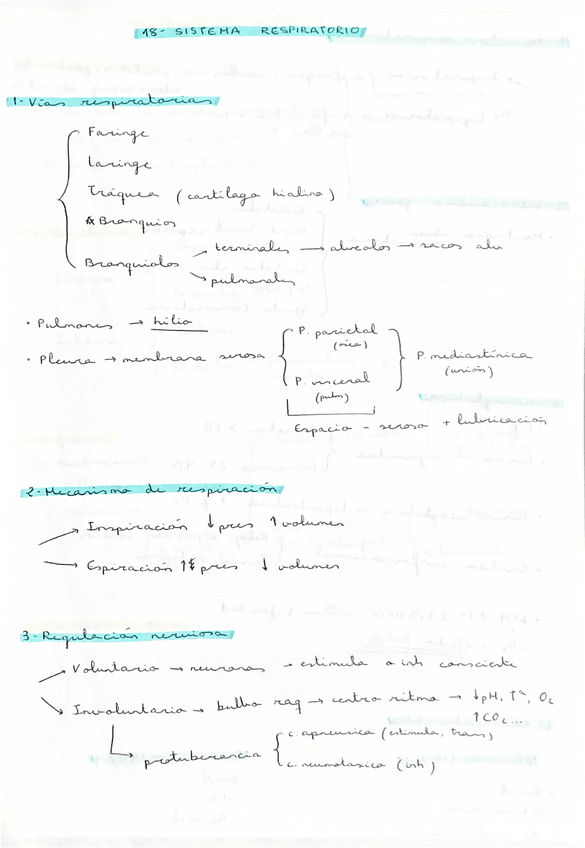 18- SISTEMA RESPIRATORIO
1- Vías respiratorias
Faringe
Laringe
Tráquea (cartílago hialino)
Bronquios
Bronquiolos → terminales → alveolos → sacos alv
→ pulmonales
• Pulmones → hilio
• Pleura → membrana serosa
P. parietal
P. visceral
(pulm)
P. mediastínica
(unión)
Espacio - seroso + lubricación
2- Mecanismo de respiración
→ Inspiración ↓ pres ↑ volumen
→ Espiración ↑ pres ↓ volumen
3- Regulación nerviosa
→ Voluntario → neuronas → estimula o inh consciente
→ Involuntario → bulbo raq → centro ritmo → ↓pH, Tª, O2
↑CO2...
protuberancia
c. apneusica (estimula, trans)
c. neumotaxica (inh)